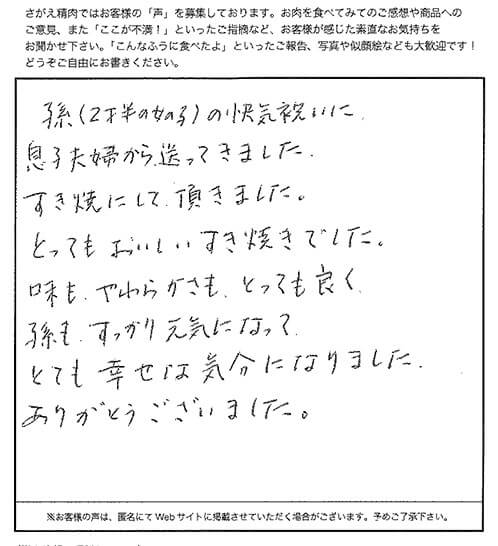 さがえ精肉ではお客様の「声」を募集しております。お肉を食べてみてのご感想や商品への
ご意見、また「ここが不満！」といったご指摘など、お客様が感じた素直なお気持ちを
お聞かせ下さい。「こんなふうに食べたよ」といったご報告、写真や似顔絵なども大歓迎です！
どうぞご自由にお書きください。
孫(2才半の女の子)の快気祝いに
息子夫婦から送ってきました。
すき焼にして頂きました。
とってもおいしいすき焼きでした。
味も、やわらかさも、とっても良く
孫も、すっかり元気になって
とても幸せな気分になりました。
ありがとうございました。
※お客様の声は、匿名にてWebサイトに掲載させていただく場合がございます。予めご了承下さい。